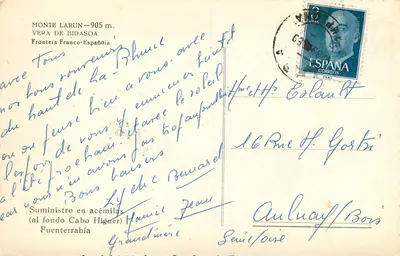 MONTE LARUN-905 m.
VERA DE BIDASOA
Frontera Franco-Española
avec tous
nos bons souvenirs
du haut de la Rhune
on on pense bien à vous avec
l'espoir de vous y emmener bientôt
à l'été prochain et avec le soleil
car nous n'en avons pas trop aujourd'hui
Bons baisers
Lydie Bernard
Mamie Jean
Grandmère
Suministro en acémilas
(al fondo Cabo Higuer)
Fuenterrabía
ESPAÑA
CORREOS
Mme et Mr
16 Rue M.
Aulnay s/Bois
Seine/oise